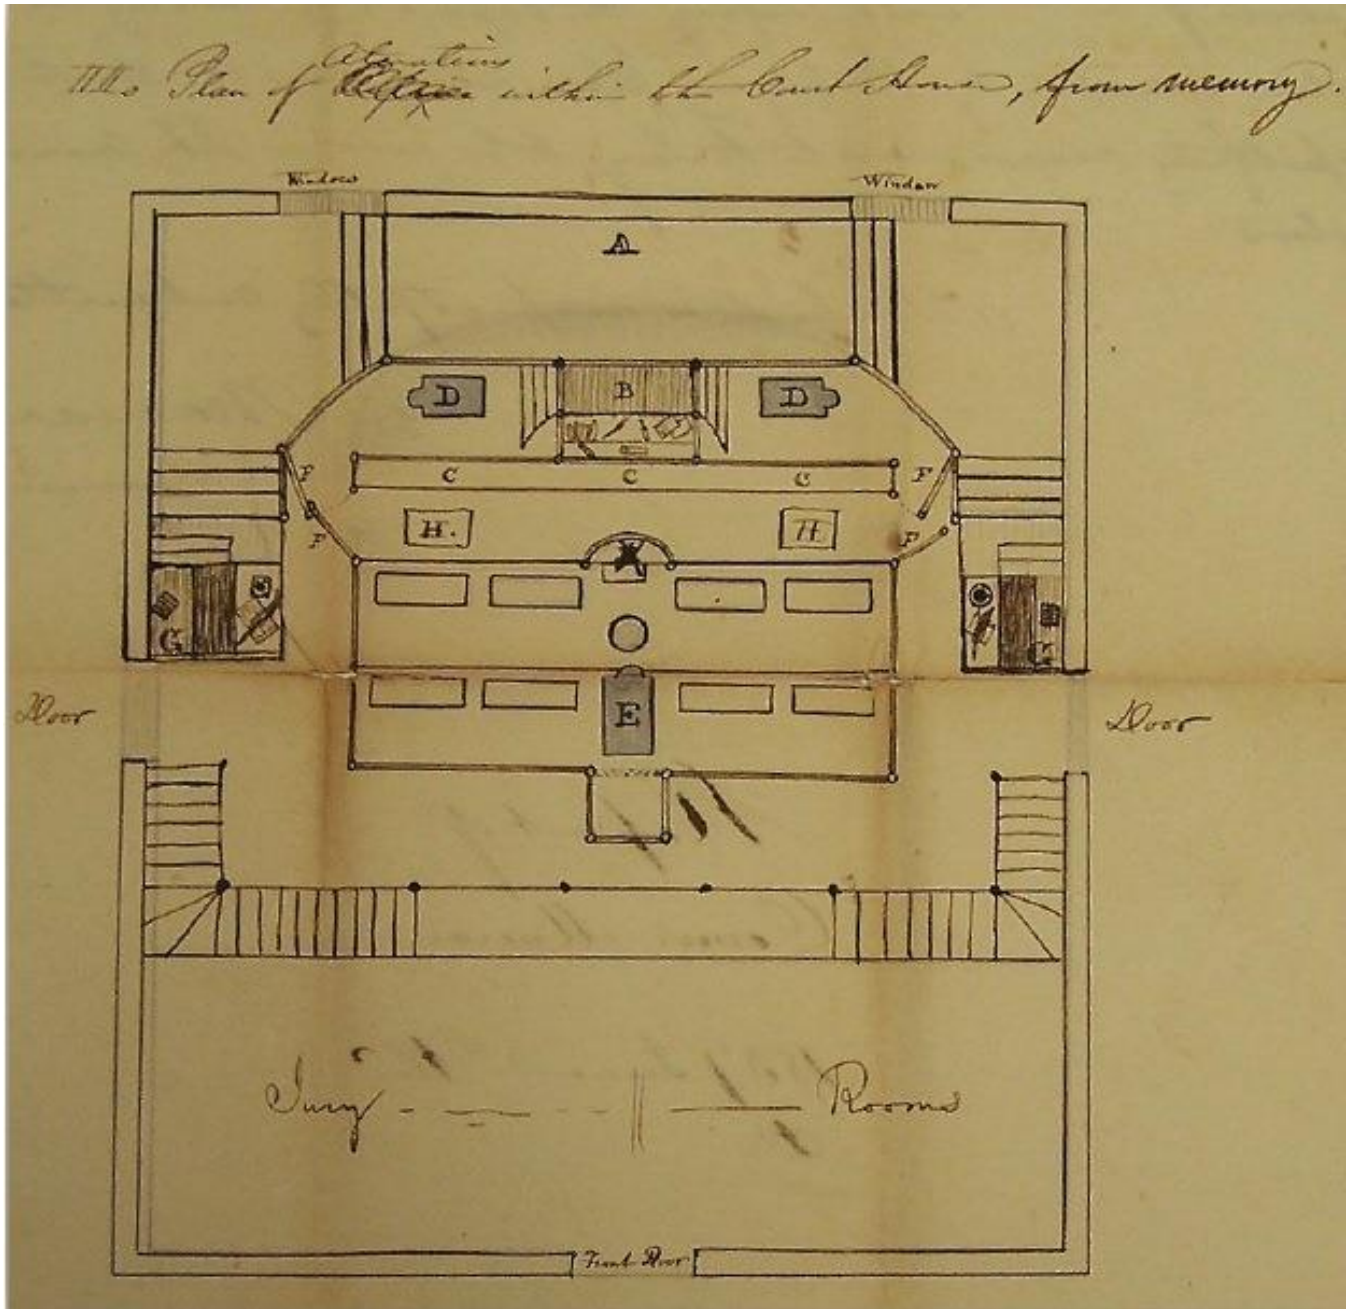 Plan of Alterations within the Court House, from memory.
Window Window
A
D B D
F C C C F
F H. H F
G G
Door E Door
Jury Rooms
Front Door